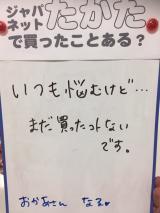 ジャパネットたかた
で買ったことある？
いつも悩むけど…
まだ買ったコトない
です。
おかあさん なる